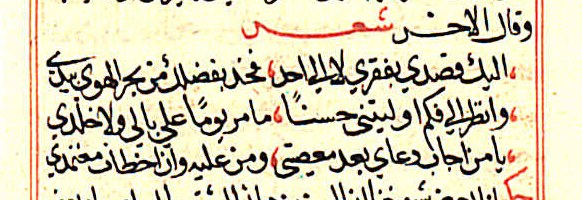 وقال الاخر شعر
اليك قصدي بفقري لا الى احد، فخذ بفضلك من بحر الهوى بيدي
وانظر الي فكم اوليتني حسنا، ما مر يوما على بالي ولا خلدي
يا من اجاب دعاي بعد معصيتي، ومن عليه وان اخطات معتمدي